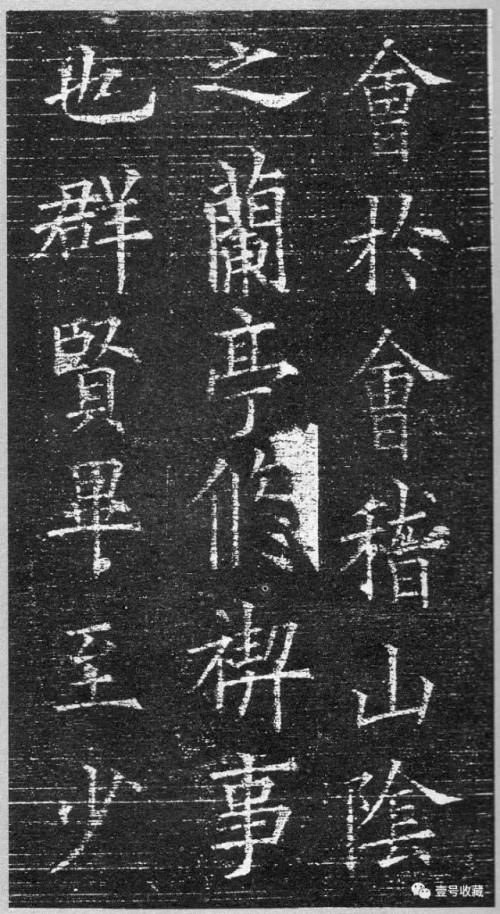 會於會稽山陰
之蘭亭修禊事
也群賢畢至少
壹号收藏